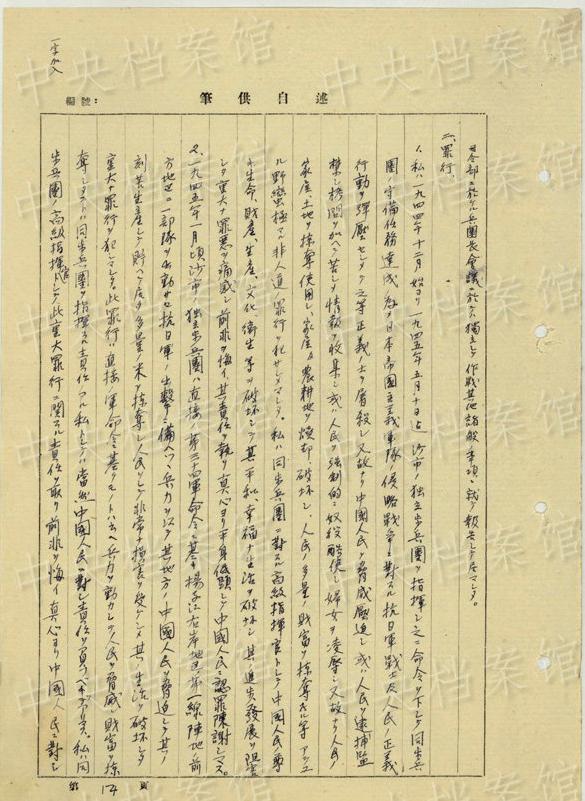 中央档案馆
編號:
筆供自述
一字加入
司令部ニ於ケル兵團長會議ニ於テハ獨立シテ作戰其他諸般ノ事項ニ就テ報告シテ居マシタ。
二、罪行、
1、私ハ一九四四年十二月始ヨリ一九四五年五月十日迄沙市ノ獨立歩兵團ヲ指揮シ之ニ命令ヲ下シテ同歩兵
團ノ守備任務達成ノ為メ日本帝國主義軍隊ノ侵略戰争ニ對スル抗日軍戰士及人民ノ正義
行動ヲ彈壓セシメテ之等正義ノ士ヲ屠殺シ又故ナク中國人民ヲ脅威壓迫シ或ハ人民ヲ逮捕監
禁シ拷問ヲ加ヘテ苦シメ情報ヲ收集シ或ハ人民ヲ強制的ニ奴役酷使シ婦女ヲ凌辱シ又故ナク人民ノ
家屋土地ヲ掠奪使用シ、家屋及農耕地ヲ燒却破坏シ、人民ノ多量ノ財富ヲ掠奪スル等アラユ
ル野蠻極マル非人道ノ罪行ヲ犯サシメマシタ。私ハ同歩兵團ニ對スル高級指揮官トシテ中國人民ノ尊
キ生命、財產、生產、文化、衛生等ヲ破坏シテ其平和ト幸福ナ生活ヲ破坏シ其ノ進歩發展ヲ阻害
シタ重大ナ罪惡ヲ痛感シ前非ヲ悔イ其責任ヲ執リ真心ヨリ平身低頭シテ中國人民ニ認罪陳謝シマス。
2、一九四五年一月頃沙市ノ獨立歩兵團ハ直接ノ第三十四軍命令ニ基キ揚子江右岸地區第一線陣地前
方地區ニ一部隊ヲ出動サセ抗日軍ノ出擊ニ備ヘツヽ兵力ヲ以テ其地方ノ中國人民ヲ脅迫シテ其ノ
刻苦生產シテ貯ヘテ居タ多量ノ米ヲ掠奪シ人民ニ對シテ非常ナ損害ヲ受ケシメ其ノ生活ヲ破坏シタ
重大ナ罪行ヲ犯シマシタ。此罪行ハ直接軍命令ニ基クモノトハ云ヘ兵力ヲ動カシテ人民ヲ脅威シ財富ヲ掠
奪シタコトハ同歩兵團ヲ指揮スル責任アル私トシテハ當然中國人民ニ對シ責任ヲ負フベキデアリマス。私ハ同
歩兵團ノ高級指揮官トシテ此重大罪行ニ関スル責任ヲ取リ前非ヲ悔イ真心ヨリ中國人民ニ對シ
第14頁